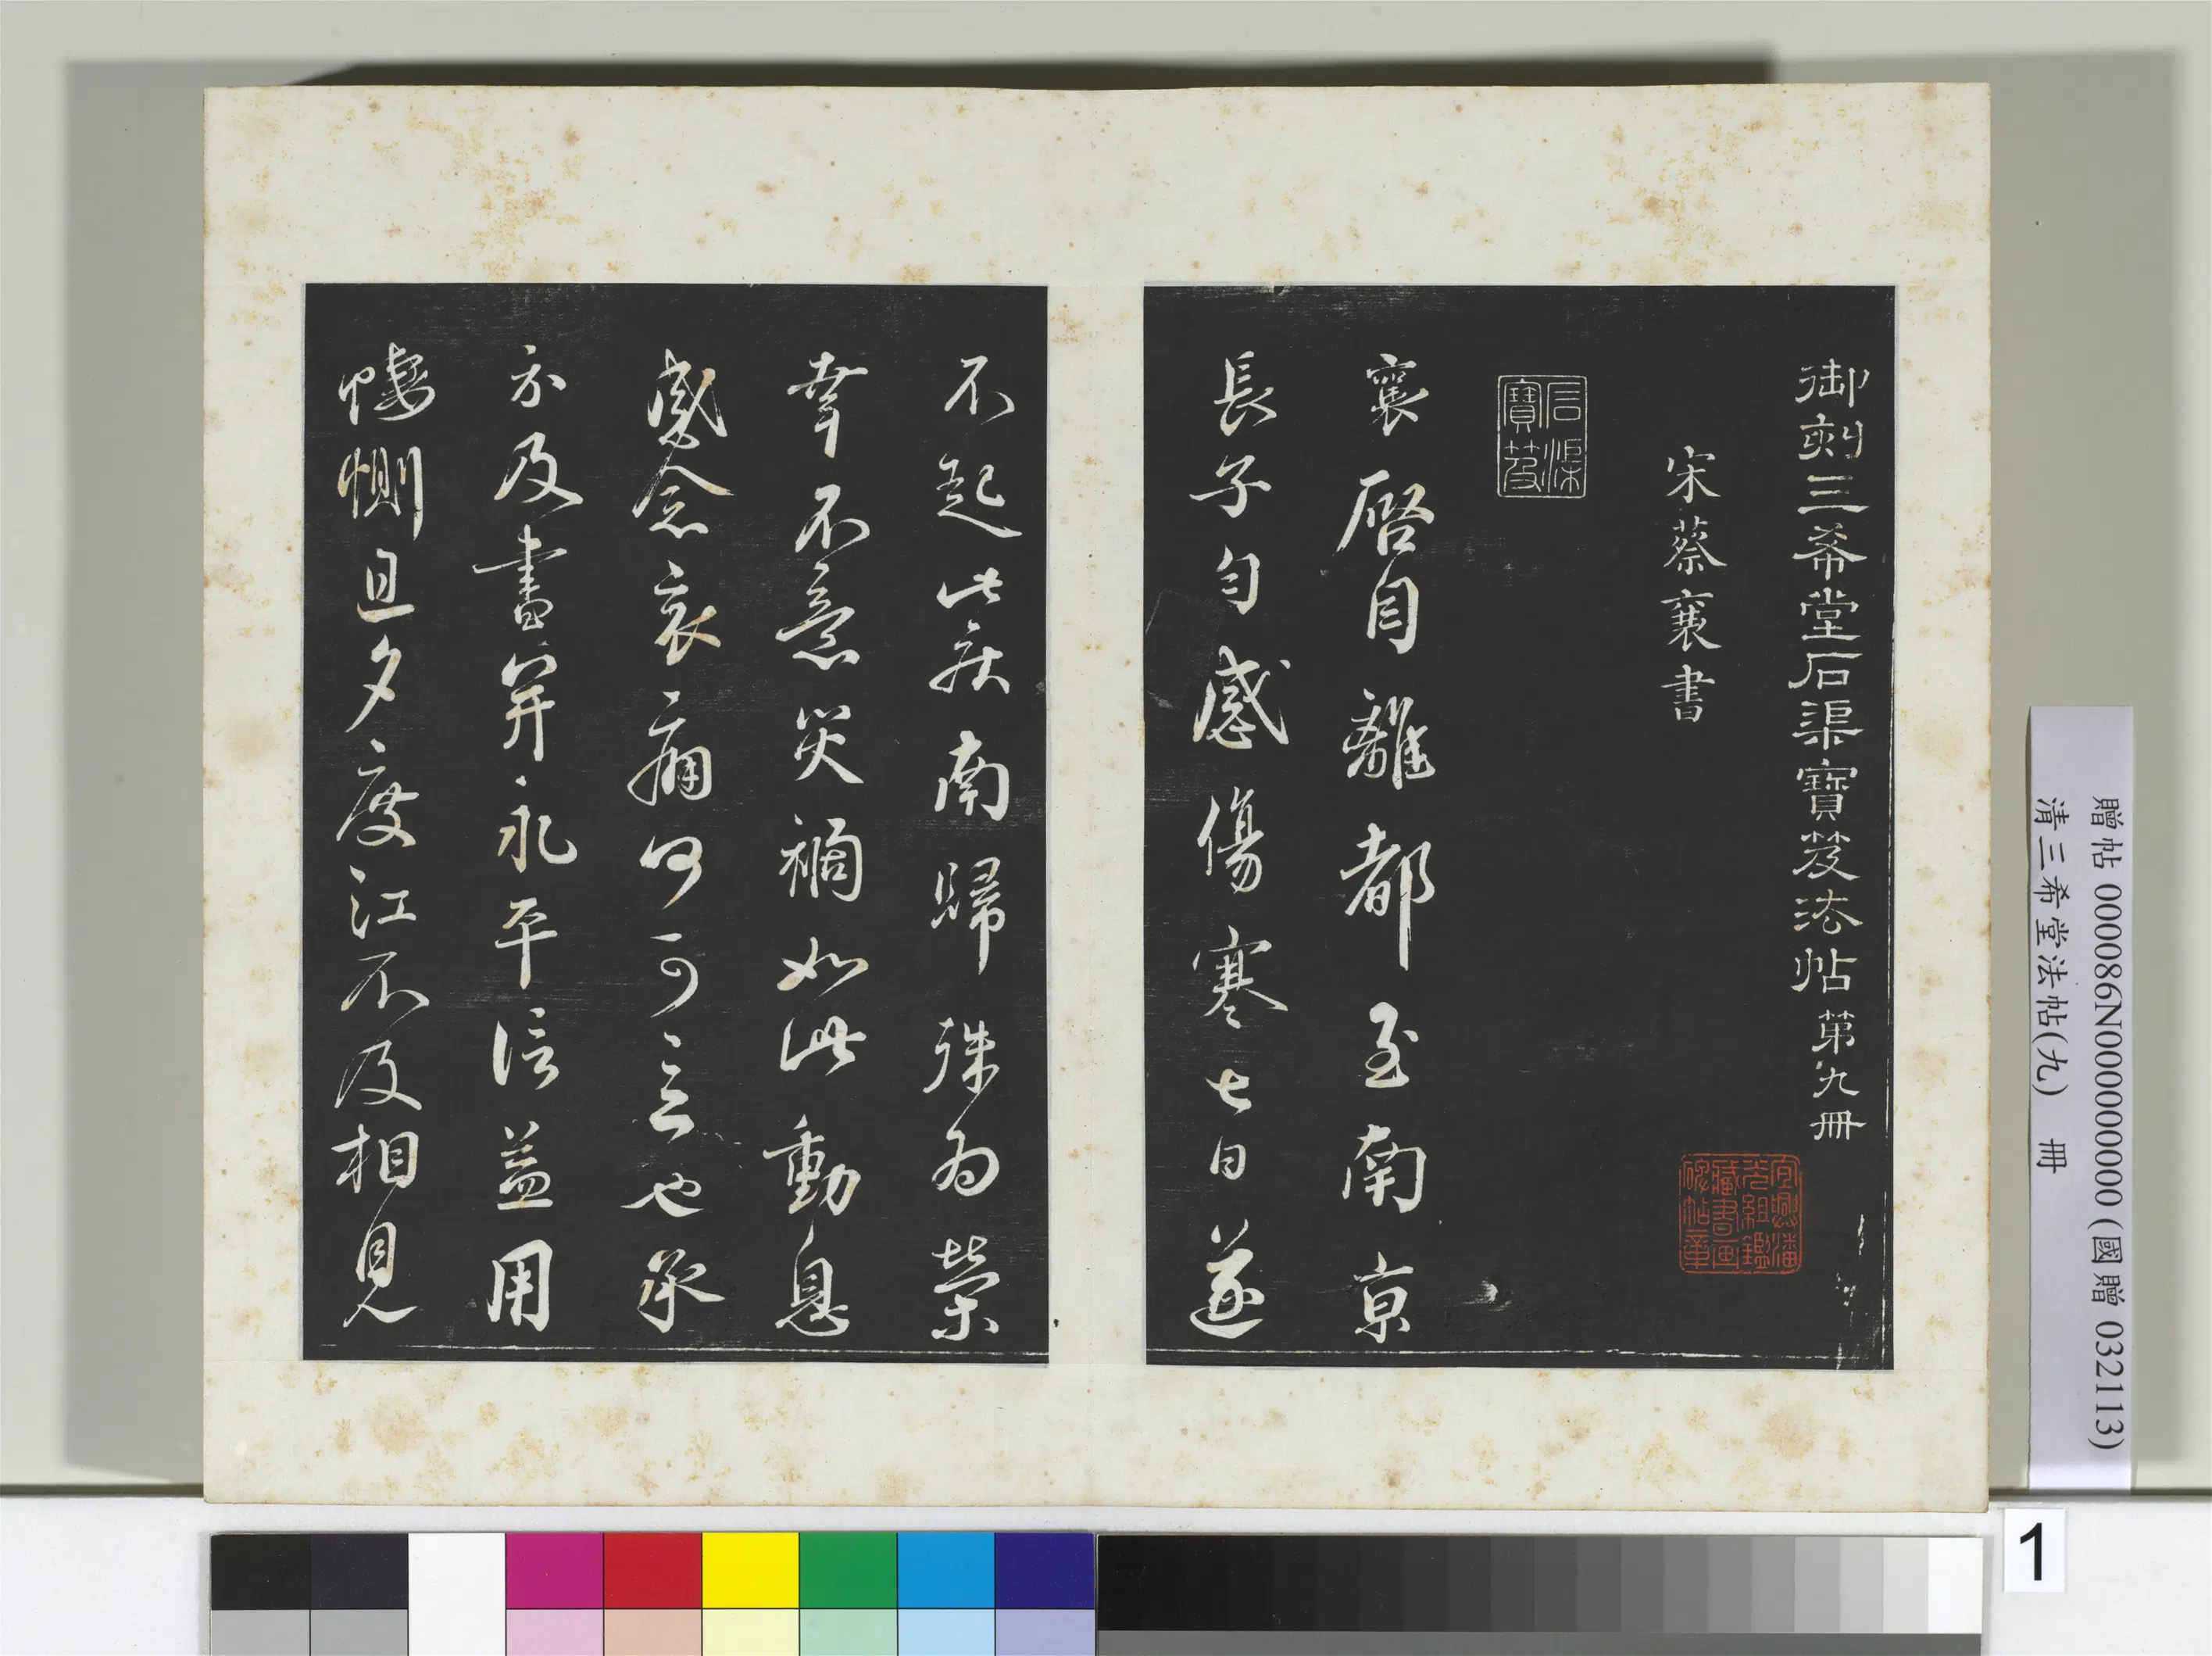 御刻三希堂石渠寶笈法帖第九冊
宋蔡襄書
石渠寶笈
宜興潘
光組鑑
藏書画
碑帖章
襄啓自離都至南京
長子勻感傷寒七日遂
不起此疾南歸殊為榮
幸不意災禍如此動息
感念哀痛何可言也承
示及書并永平信益用
悽惻旦夕度江不及相見
贈帖 000086N000000000 (國贈 032113)
清三希堂法帖(九) 冊
1